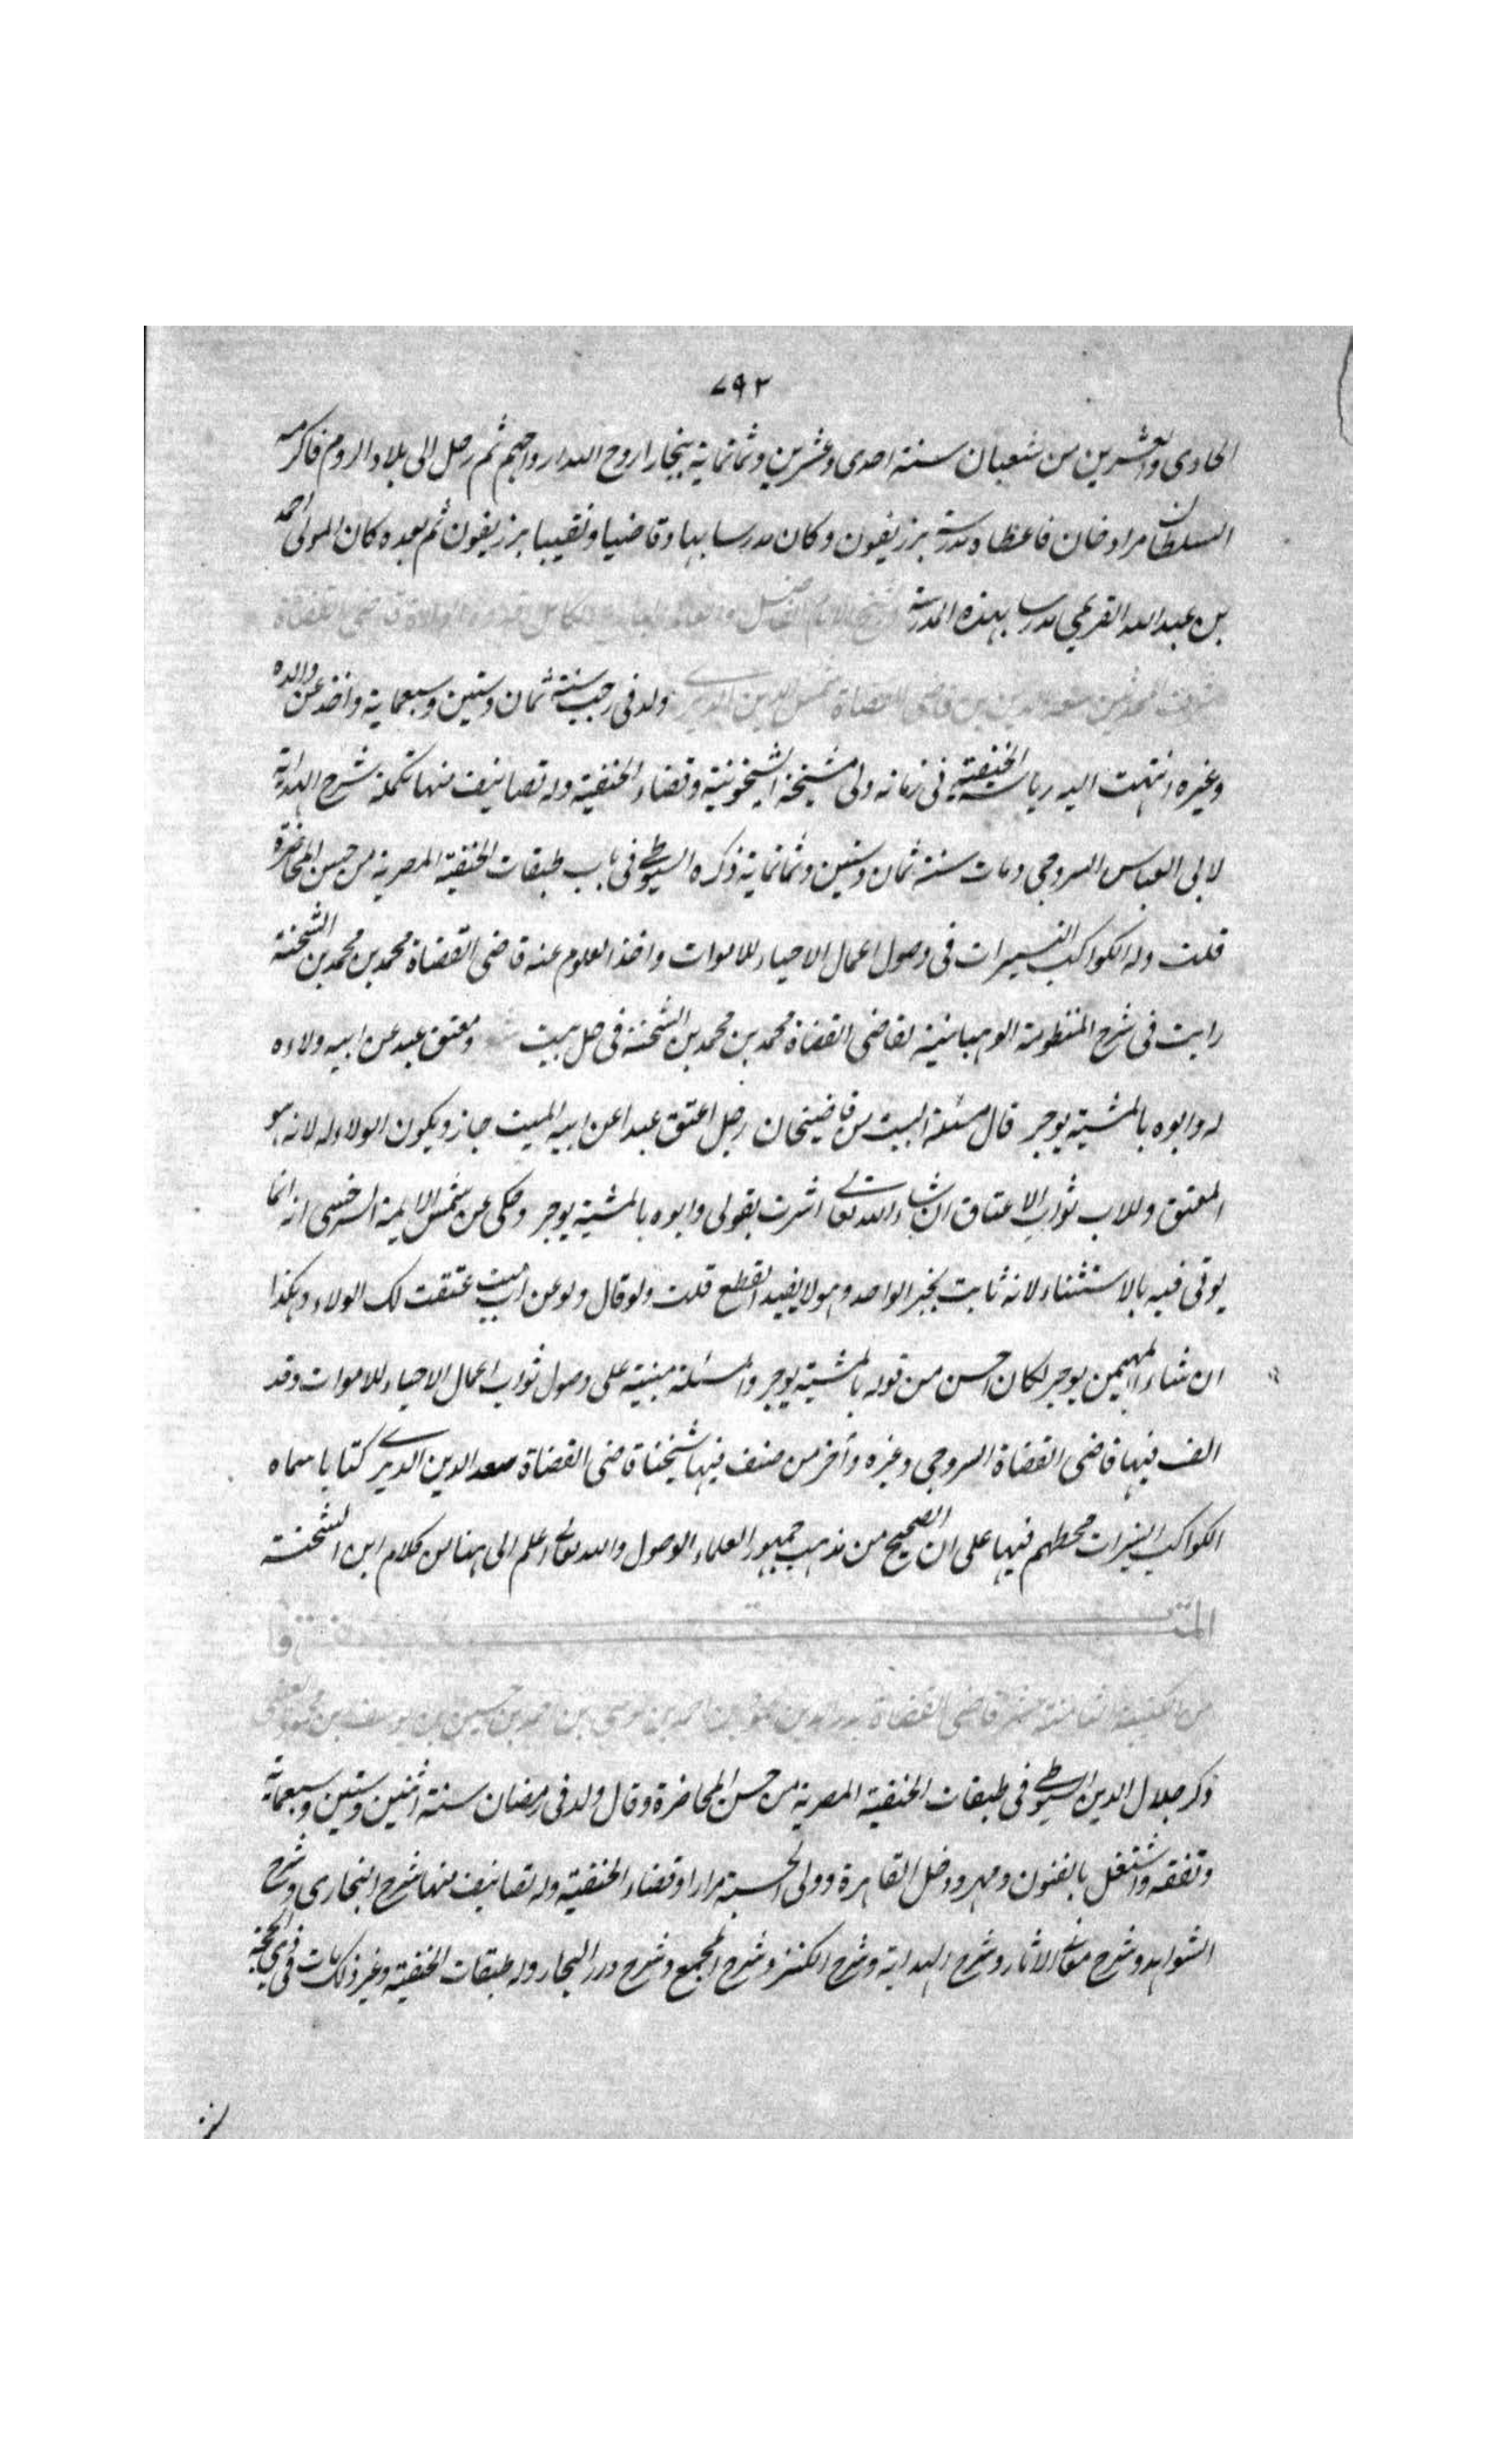 ٧٩٢
الحادى والعشرين من شعبان سنة احدى وعشرين وثمانماية ببخارا روح الله ارواحهم ثم رحل الى بلاد الروم فاكرمه
السلطان مراد خان فاعطاه مدرسة برزيفون وكان مدرسا بها وقاضيا ونقيبا برزيفون ثم بعده كان المولى احمد
بن عبد الله القريمى مدرسا بهذه المدرسة الشيخ الامام قاضى القضاة
سعد الدين بن قاضى القضاة شمس الدين الديرى ولد فى رجب سنة ثمان وستين وسبعماية واخذ عن والده
وغيره انتهت اليه رياسة الحنفية فى زمانه ولى مشيخة الشيخونية وقضاء الحنفية وله تصانيف منها تكملة شرح الهداية
لابى العباس السروجى ومات سنة ثمان وستين وثمانماية ذكره السيوطى فى باب طبقات الحنفية المصرية من حسن المحاضرة
قلت وله الكواكب النيرات فى وصول اعمال الاحياء للاموات واخذ العلوم عنه قاضى القضاة محمد بن محمد بن الشحنة
رايت فى شرح المنظومة الوهبانية لقاضى القضاة محمد بن محمد بن الشحنة فى حل بيت ومعتق عبد عن ابيه ولاءه
له وابوه بالمشية يوجر قال مسئلة البيت من قاضيخان رجل اعتق عبدا عن ابيه الميت جاز ويكون الولاء له لانه هو
المعتق وللاب ثواب الاعتاق ان شاء الله تعالى اشرت بقولى وابوه بالمشية يوجر وحكى عن شمس الايمة السرخسى انه انما
يوتى فيه بالاستثناء لانه ثابت بخبر الواحد وهو لا يفيد القطع قلت ولو قال ولو عن اب ميت عتقت لك الولاء وهكذا
ان شاء المهيمن يوجر لكان احسن من قوله بالمشية يوجر والمسئلة مبنية على وصول ثواب اعمال الاحياء للاموات وقد
الف فيها قاضى القضاة السروجى وغيره وآخر من صنف فيها شيخنا قاضى القضاة سعد الدين الديرى كتابا سماه
الكواكب النيرات محطهم فيها على ان الصحيح من مذهب جمهور العلماء الوصول والله تعالى اعلم الى هنا من كلام ابن الشحنة
من الكتيبة الثامنة عشر قاضى القضاة بدر الدين محمود بن احمد بن موسى بن احمد بن حسين بن يوسف بن محمود العينى
ذكر جلال الدين السيوطى فى طبقات الحنفية المصرية من حسن المحاضرة وقال ولد فى رمضان سنة اثنين وستين وسبعمائة
وتفقه واشتغل بالفنون ومهر ودخل القاهرة وولى الحسبة مرارا وقضاء الحنفية وله تصانيف منها شرح البخارى وشرح
الشواهد وشرح معانى الاثار وشرح الهداية وشرح الكنز وشرح المجمع وشرح درر البحار وله طبقات الحنفية وغير ذلك مات فى ذى الحجة